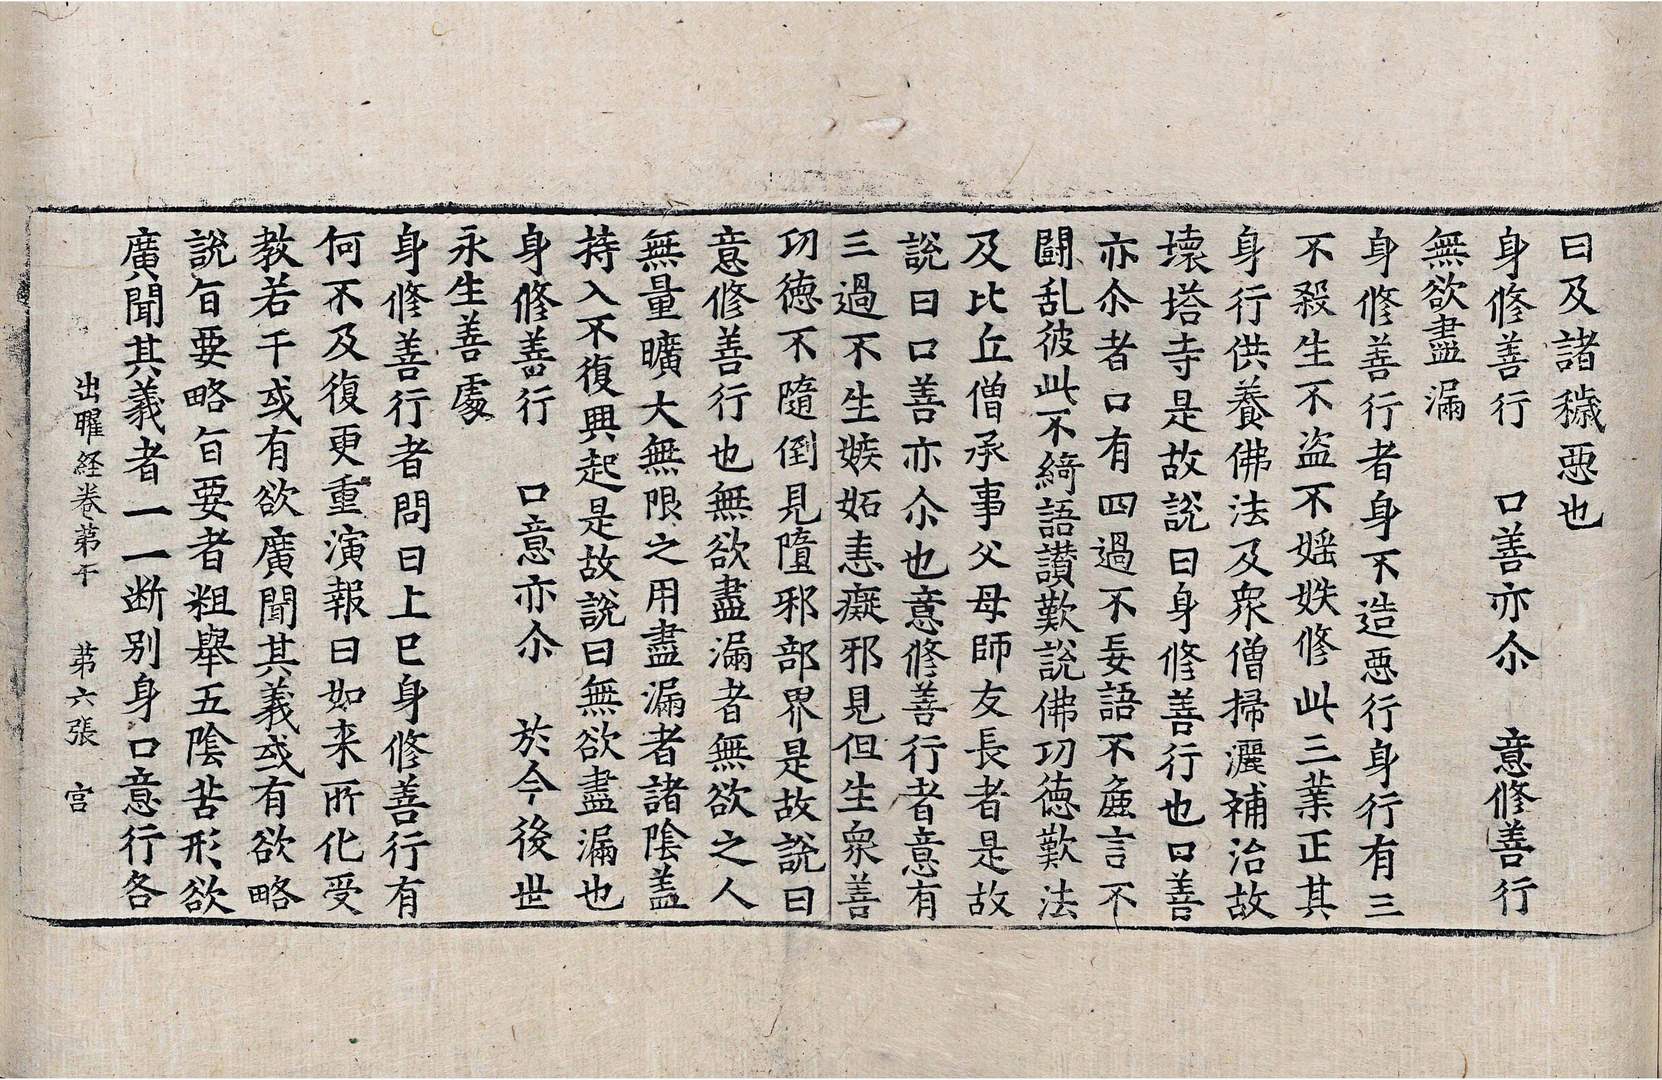 曰及諸穢惡也
身修善行　口善亦尒　意修善行
無欲盡漏
身修善行者身不造惡行身行有三
不殺生不盜不婬妷修此三業正其
身行供養佛法及衆僧掃灑補治故
壞塔寺是故說曰身修善行也口善
亦尒者口有四過不妄語不麁言不
闘乱彼此不綺語讃歎說佛功德歎法
及比丘僧承事父母師友長者是故
說曰口善亦尒也意修善行者意有
三過不生嫉妬恚癡邪見但生衆善
功德不隨倒見墮邪部界是故說曰
意修善行也無欲盡漏者無欲之人
無量曠大無限之用盡漏者諸陰蓋
持入不復興起是故說曰無欲盡漏也
身修善行　口意亦尒　於今後世
永生善處
身修善行者問曰上已身修善行有
何不及復更重演報曰如来所化受
教若干或有欲廣聞其義或有欲略
說旨要略旨要者粗舉五陰苦形欲
廣聞其義者一一断别身口意行各
出曜経卷第　第六張　宫